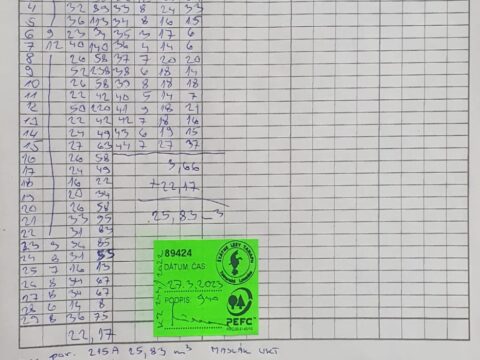 4 32 89 33 8 24 33
5 36 113 34 8 16 15
6 9 23 34 35 3 17 6
7 12 40 140 36 4 14 6
8 26 58 37 7 20 20
9 52 238 38 6 18 14
10 26 58 39 8 18 18
11 22 42 40 5 14 7
12 50 220 41 9 18 21
13 22 42 42 7 18 16
14 24 49 43 6 19 15
15 27 63 44 7 27 37
16 26 58
17 24 49 3,66
18 16 22 +22,17
19 20 34
20 26 58 25,83 m3
21 33 95
22 31 83
23 9 34 85
24 8 31 55
25 7 16 13
26 8 31 67
27 8 34 67
28 6 14 8
29 8 36 75
22,17
89424
DÁTUM ČAS
27.3.2023
PODPIS
PEFC
par. 215A 25,83 m3